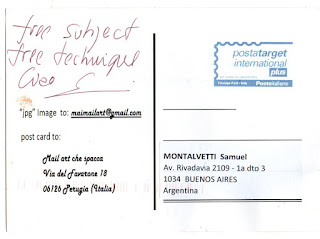 free subject
free technique
Ciao
"jpg" image to: maimailart@gmail.com
post card to:
Mail art che spacca
Via del Favarone 18
06126 Perugia (Italia)
postatarget
international
plus
Posteitaliane
MONTALVETTI Samuel
Av. Rivadavia 2109 - 1a dto 3
1034 BUENOS AIRES
Argentina